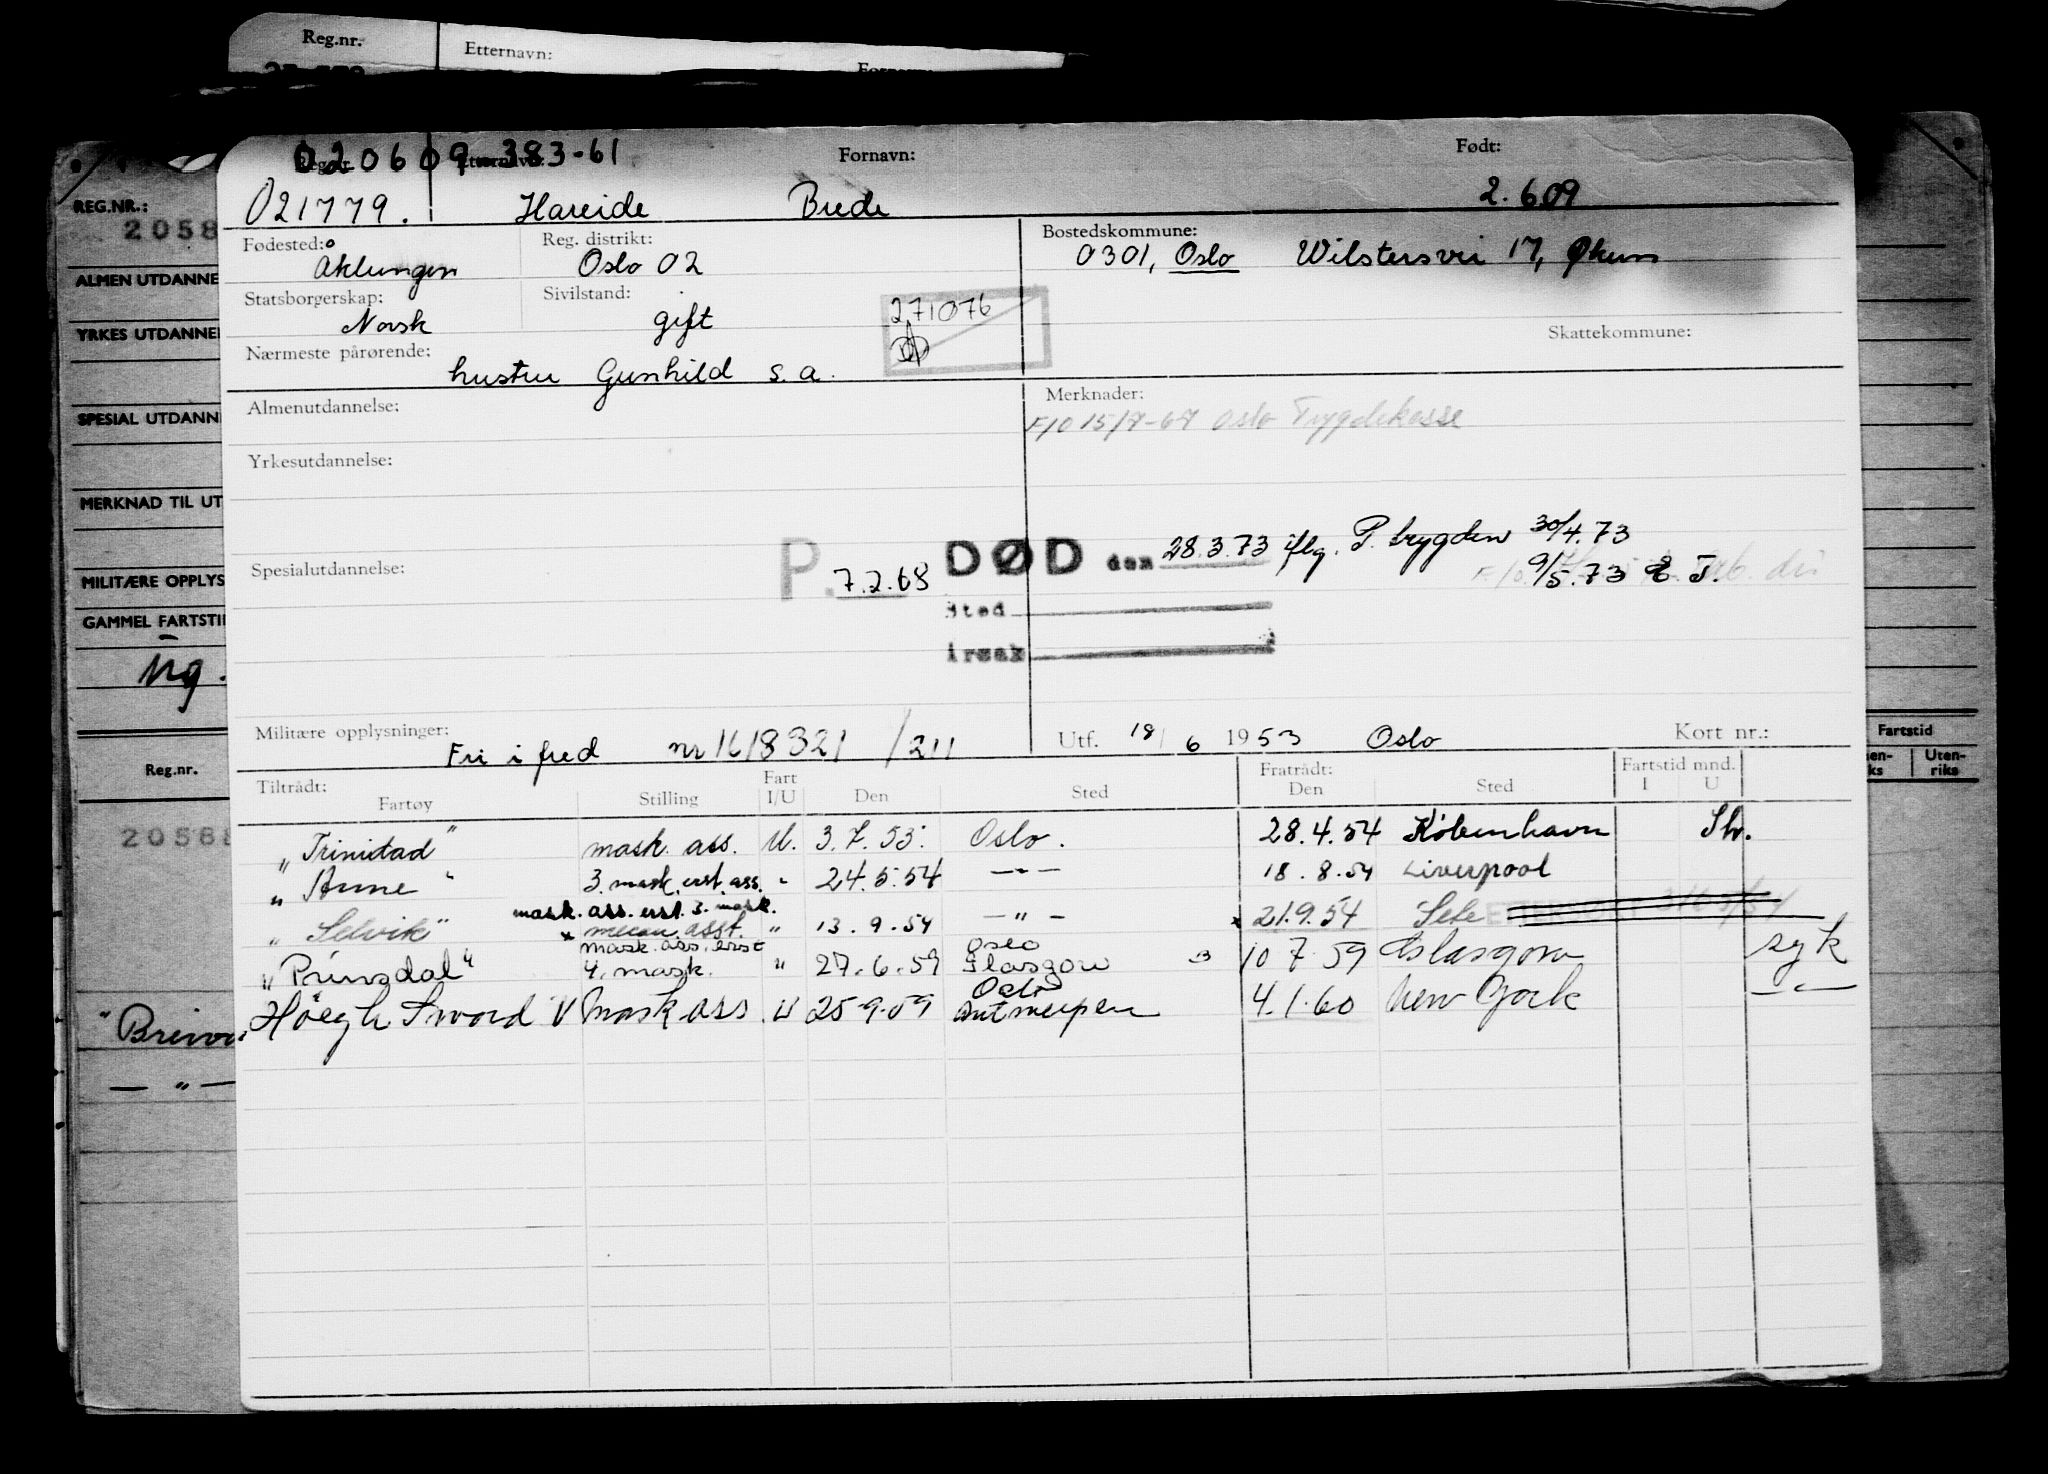 Reg.nr. Etternavn:
REG.NR.:
2058
ALMEN UTDANNE
YRKES UTDANNE
SPESIAL UTDANN
MERKNAD TIL UT
MILITÆRE OPPLYS
GAMMEL FARTSTI
Reg.nr.
2058
Fartstid
Uten-
riks
020609 383-61
Fornavn: Født:
021779. Hareide Brede 2.6.09
Fødested: Reg. distrikt: Bostedskommune:
Oslo 02 0301, Oslo Wilstersvei 17, Økern
Statsborgerskap: Sivilstand:
Norsk gift 271076
Skattekommune:
Nærmeste pårørende:
hustru Gunhild s.a.
Almenutdannelse: Merknader:
F/O 15/7-67 Oslo Trygdekasse
Yrkesutdannelse:
Spesialutdannelse:
P. 7.2.68 DØD den 28.3.73 iflg. P. trygden 30/4.73
9/5.73
Sted
Årsak
Militære opplysninger: Fri i fred nr 1618321 /211
Utf. 18/6 1953 Oslo Kort nr.:
Tiltrådt: Fart Fratrådt: Fartstid mnd.
Fartøy Stilling I/U Den Sted Den Sted I U
"Trinidad" mask. ass. U. 3.7.53. Oslo. 28.4.54 København
"Anne" 3. mask. erst. ass. " 24.5.54 — " — 18.8.54 Liverpool
mask. ass. erst. 3. mask.
"Selvik" x asst. " 13.9.54 — " — x 21.9.54 Sete
mask. ass. erst Oslo
"Prinsdal" 4. mask. " 27.6.59 Glasgow 10 7.59 Glasgow syk
Oslo
Höegh Sword V Mask ass. U 25-9-59 Antwerpen 4.1.60 New York — " —